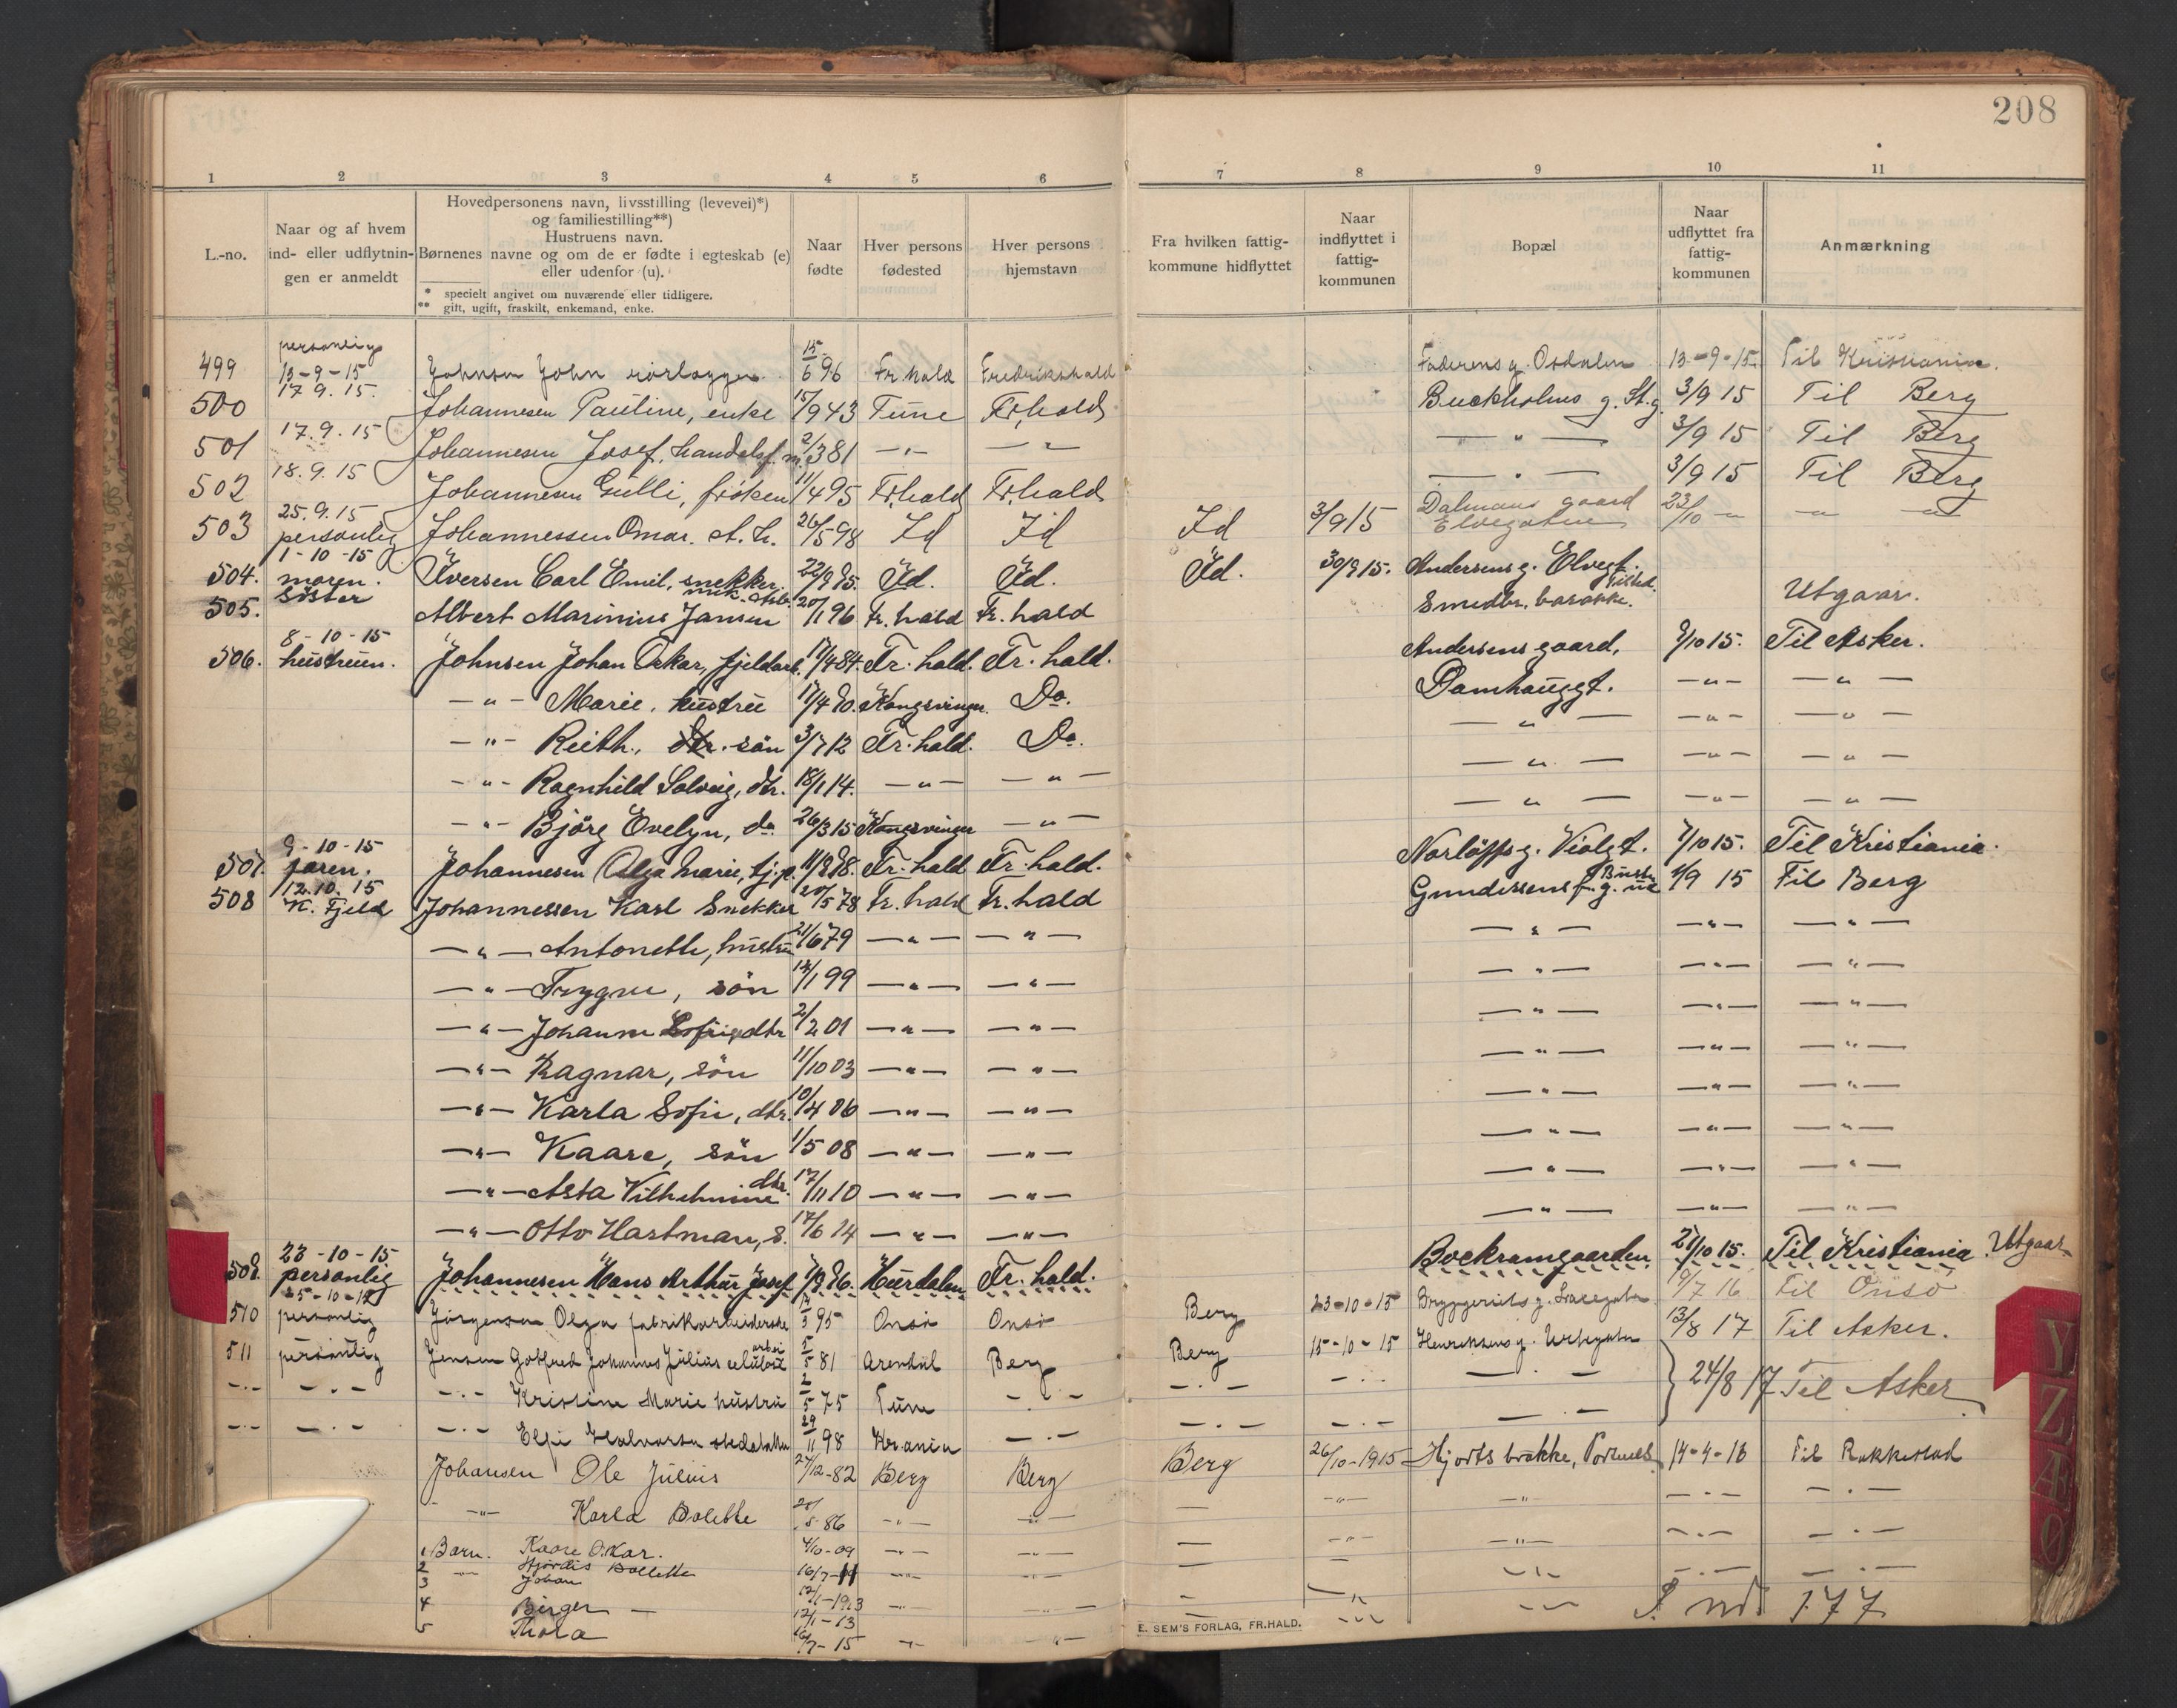 208
1 2 3 4 5 6 7 8 9 10 11
L.-no.
Naar og af hvem ind- eller udflytningen er anmeldt
Hovedpersonens navn, livsstilling (levevei)*)
og familiestilling**)
Hustruens navn.
Børnenes navne og om de er fødte i egteskab (e)
eller udenfor (u).
* specielt angivet om nuværende eller tidligere.
** gift, ugift, fraskilt, enkemand, enke.
Naar fødte
Hver persons fødested
Hver persons hjemstavn
Fra hvilken fattigkommune hidflyttet
Naar indflyttet i fattigkommunen
Bopæl
Naar udflyttet fra fattigkommunen
Anmærkning
499 personlig 13-9-15 Johnsen John rörlægger 15/6 96 Fr.hald Fredrikshald Faderens g. Osdalen 13-9-15 Til Kristiania.
500 17.9.15. Johannesen Pauline, enke 15/9 43 Tune Fr.hald Buckholms g. St.g. 3/9 15 Til Berg
501 17.9.15 Johannesen Josef, handelsf.m. 2/3 81 — " — — " — — " — 3/9 15 Til Berg
502 18.9.15 Johannesen Gulli, fröken 11/4 95 Fr.hald Fr.hald — " — 3/9 15 Til Berg
503 25.9.15 personlig Johannessen Omar. A.h. 26/5 98 Id Id Id 3/9 15 Dalmans gaard Elvegaten 23/10 — " — "
504. 1-10-15 moren. Iversen Carl Emil, snekker. 22/9 95. Id. Id. Id. 30/9 15. Andersens g. Elvegt.
505. Söster Albert Marinius Jansen mek. Arb. 20/1 96 Fr.hald Fr.hald Smedbr. barakke. Utgaar.
506. 8-10-15 hustruen. Johnsen Johan Oskar, fjeldarb. 17/4 84. Fr.hald. Fr.hald. Andersens gaard, 9/10 15. Til Asker.
— " — Marie, hustru 17/4 90. Kongsvinger. Do. Damhauggt. — " — — " —
— " — Reith, dtr. sön 3/7 12 Fr.hald. Do. — " — — " — — " —
— " — Ragnhild Solveig, dtr. 18/1 14. — " — — " — — " — — " — — " —
— " — Björg Evelyn, do. 26/3 15 Kongsvinger — " — — " — — " — — " —
507. 9-10-15 faren. Johannesen Olga Marie, tj.p. 11/9 98. Fr.hald Fr.hald. Norlöffs g. Violgt. 7/10 15. Til Kristiania.
508 12.10.15 K. Fjeld Johannessen Karl Snekker 20/5 78 Fr.hald Fr.hald Gundersens g. 1/9 15 Til Berg
— " — Antonette, hustru 21/6 79 — " — — " — — " — — " — — " —
— " — Trygve, sön 14/1 99 — " — — " — — " — — " — — " —
— " — Johanne Sofie, dtr 2/2 01 — " — — " — — " — — " — — " —
— " — Ragnar, sön 11/10 03 — " — — " — — " — — " — — " —
— " — Karla Sofie, dtr. 10/4 06 — " — — " — — " — — " — — " —
— " — Kaare, sön 1/5 08 — " — — " — — " — — " — — " —
— " — Asta Vilhelmine dtr. 17/11 10 — " — — " — — " — — " — — " —
— " — Otto Hartman, s. 17/6 14 — " — — " — — " — — " — — " —
508. 23-10-15 personlig Johannesen Hans Arthur Josef 7/9 96. Hurdalen Fr.hald. Bockramgaarden. 21/10 15. Til Kristiania. Utgaar
510 25-10-15 personlig Jörgensen Olga fabrikarbeiderske 14/3 95 Onsö Onsö Berg 23-10-15 g. 19/7 16 Til Onsö
511 personlig Jensen Gotfred Johannes Julius arbei 5/5 81 Arendal Berg Berg 15-10-15 Henriksens g. 13/8 17 Til Asker.
— " — — " — — " — Kristine Marie hustru 2/5 75 Tune — " — — " — — " — — " — 24/8 17 Til Asker
— " — — " — — " — Elfi Halvorsen 29/11 98 Kr.ania — " — — " — — " — — " —
Johansen Ole Julius 24/12-82 Berg Berg Berg 26/10-1915 Hjorts brakke, 14-4-16 Til Rakkestad
— " — Karla Bolette 20/5-86 — " — — " — — — " — — " — — " — — " —
1 Barn. Kaare Oskar. 4/10-09 — " — — " — — — " — — " — — " — — " —
2 — " — Hjördis Bollette 16/7-11 — " — — " —
3 Johan 12/1-1913 — " —
4 Birger — 12/1-13
5 Thora 16/7-15 — " — — " —
S. nr. 177
E. SEM'S FORLAG, FR.HALD.
Y
Z
Æ
Ø